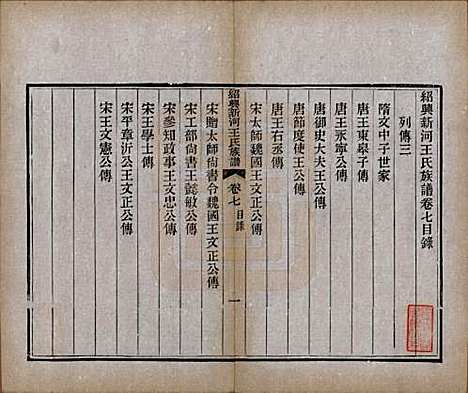 紹興新河王氏族譜卷七目錄
列傳三
隋文中子世家
唐王東皋子傳
唐王永寧公傳
唐御史大夫王公傳
唐節度使王公傳
唐王右丞傳
宋太師魏國王文正公傳
紹興新河王氏族譜 卷七 目錄 一
宋贈太師尚書令魏國王文正公傳
宋工部尚書王懿敏公傳
宋參知政事王文忠公傳
宋王學士傳
宋平章沂公王文正公傳
宋王文憲公傳